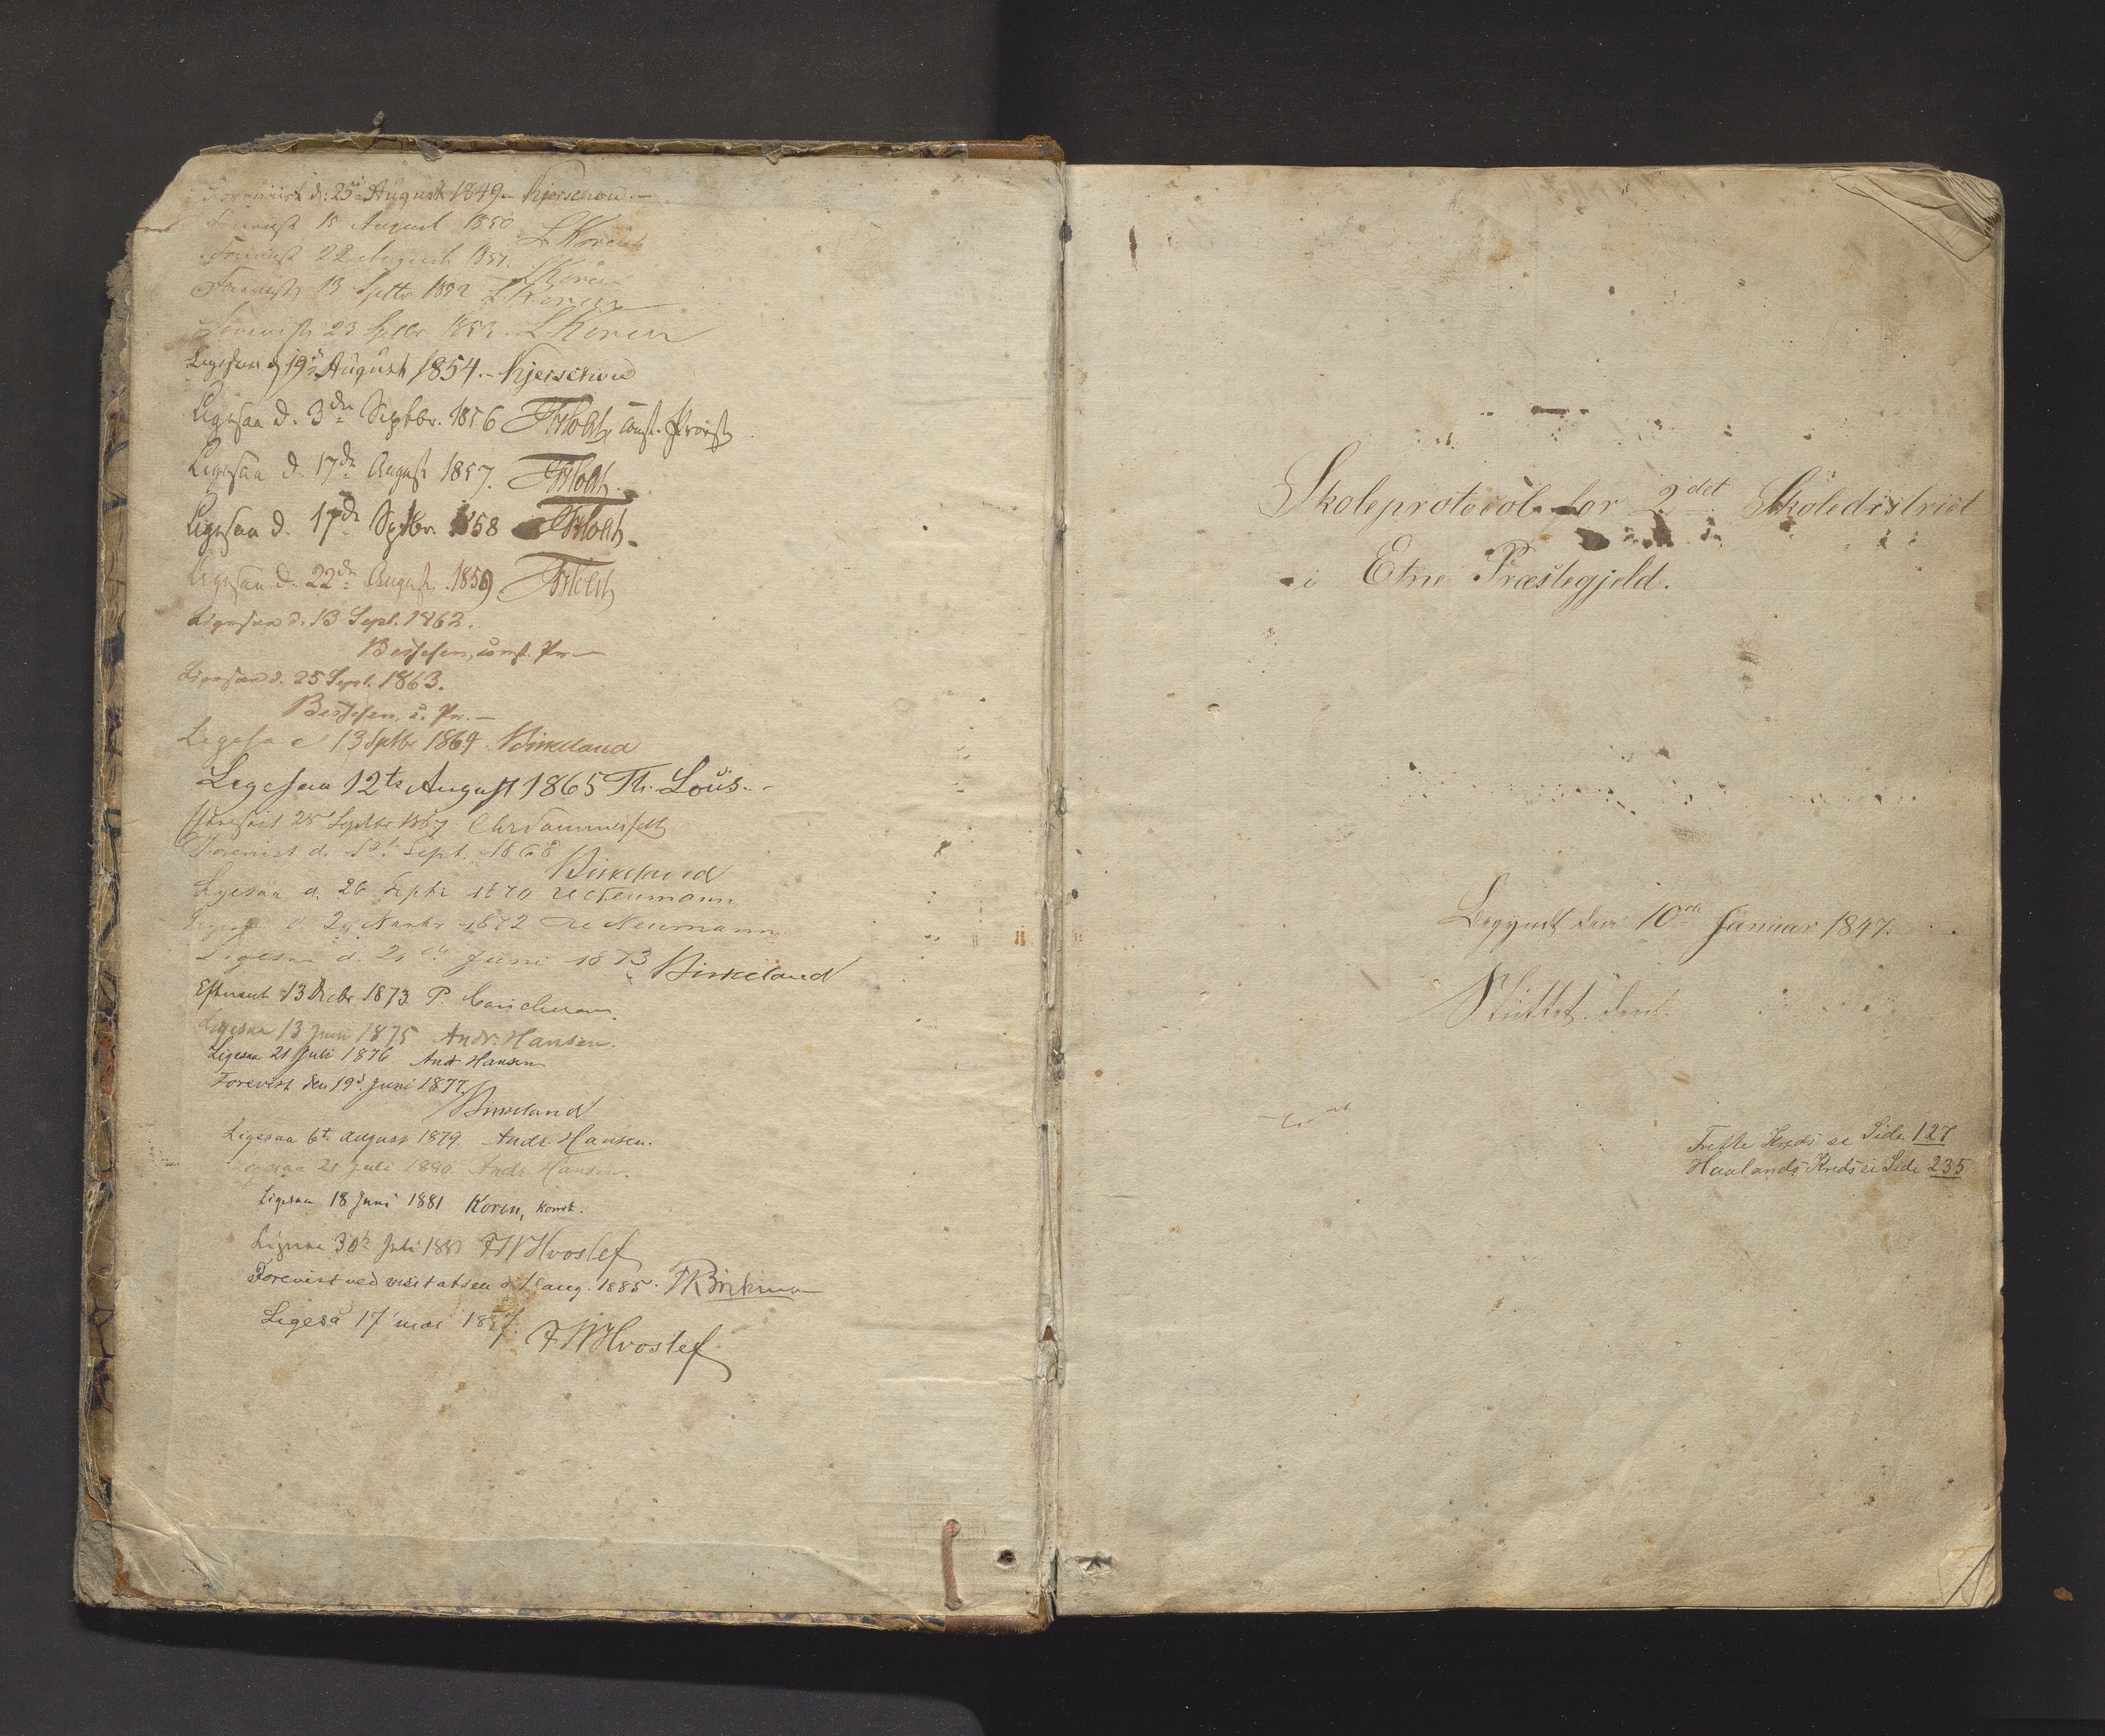 Forevist d: 25de August 1849.- Kjerschow.-
Forevist 15 August 1850 L Koren
Forevist 22 August 1851. L Koren
Forevist 13 Septbr 1852 L Koren
Forevist 23 Septbr 1853. L Koren
Ligesaa d 19de August 1854.- Kjerschow
Ligesaa d. 3die Septbr. 1856 const. Provst
Ligesaa d. 17de August 1857.
Ligesaa d. 17de Septbr. 1858
Ligesaa d. 22de August 1859
Ligesaa d. 13 Sept. 1862.
const. Pr.
Ligesaa d. 25 Sept. 1863.
c. Pr. -
Ligesaa d 13 Sptbr 1864 Birkeland
Ligesaa 12te August 1865 Th. Lous.-
Forevist 25 Septbr 1867
Forevist d. Sept. 1868 Birkeland
Ligesaa d. 26 Septr 1870 Neumann
d 29 1872 Neumann
Ligesaa d. 21de Juni 1873 Birkeland
13 Decbr. 1873. P.
Ligesaa 13 Juni 1875 Andr. Hansen.
Ligesaa 21 Juli 1876 Andr Hansen
Forevist den 19d. Juni 1877.
Birkeland
Ligesaa 6te August 1879. Andr. Hansen.
Ligesaa 21 Juli 1880. Andr. Hansen.
Ligesaa 18 Juni 1881 Koren, konst.
Ligesaa 30te Juli 188 FWHvoslef
Forevist ved visitatsen d. aug. 1885.
Ligeså 17 mai 1887. FWHvoslef
Skoleprotocol for 2det Skoledistrict
i Etne Præstegjeld.
Begyndt den 10de Januar 1847.
Sluttet den
Trefte Kreds se Side 127
Haalands Kreds se Side 235